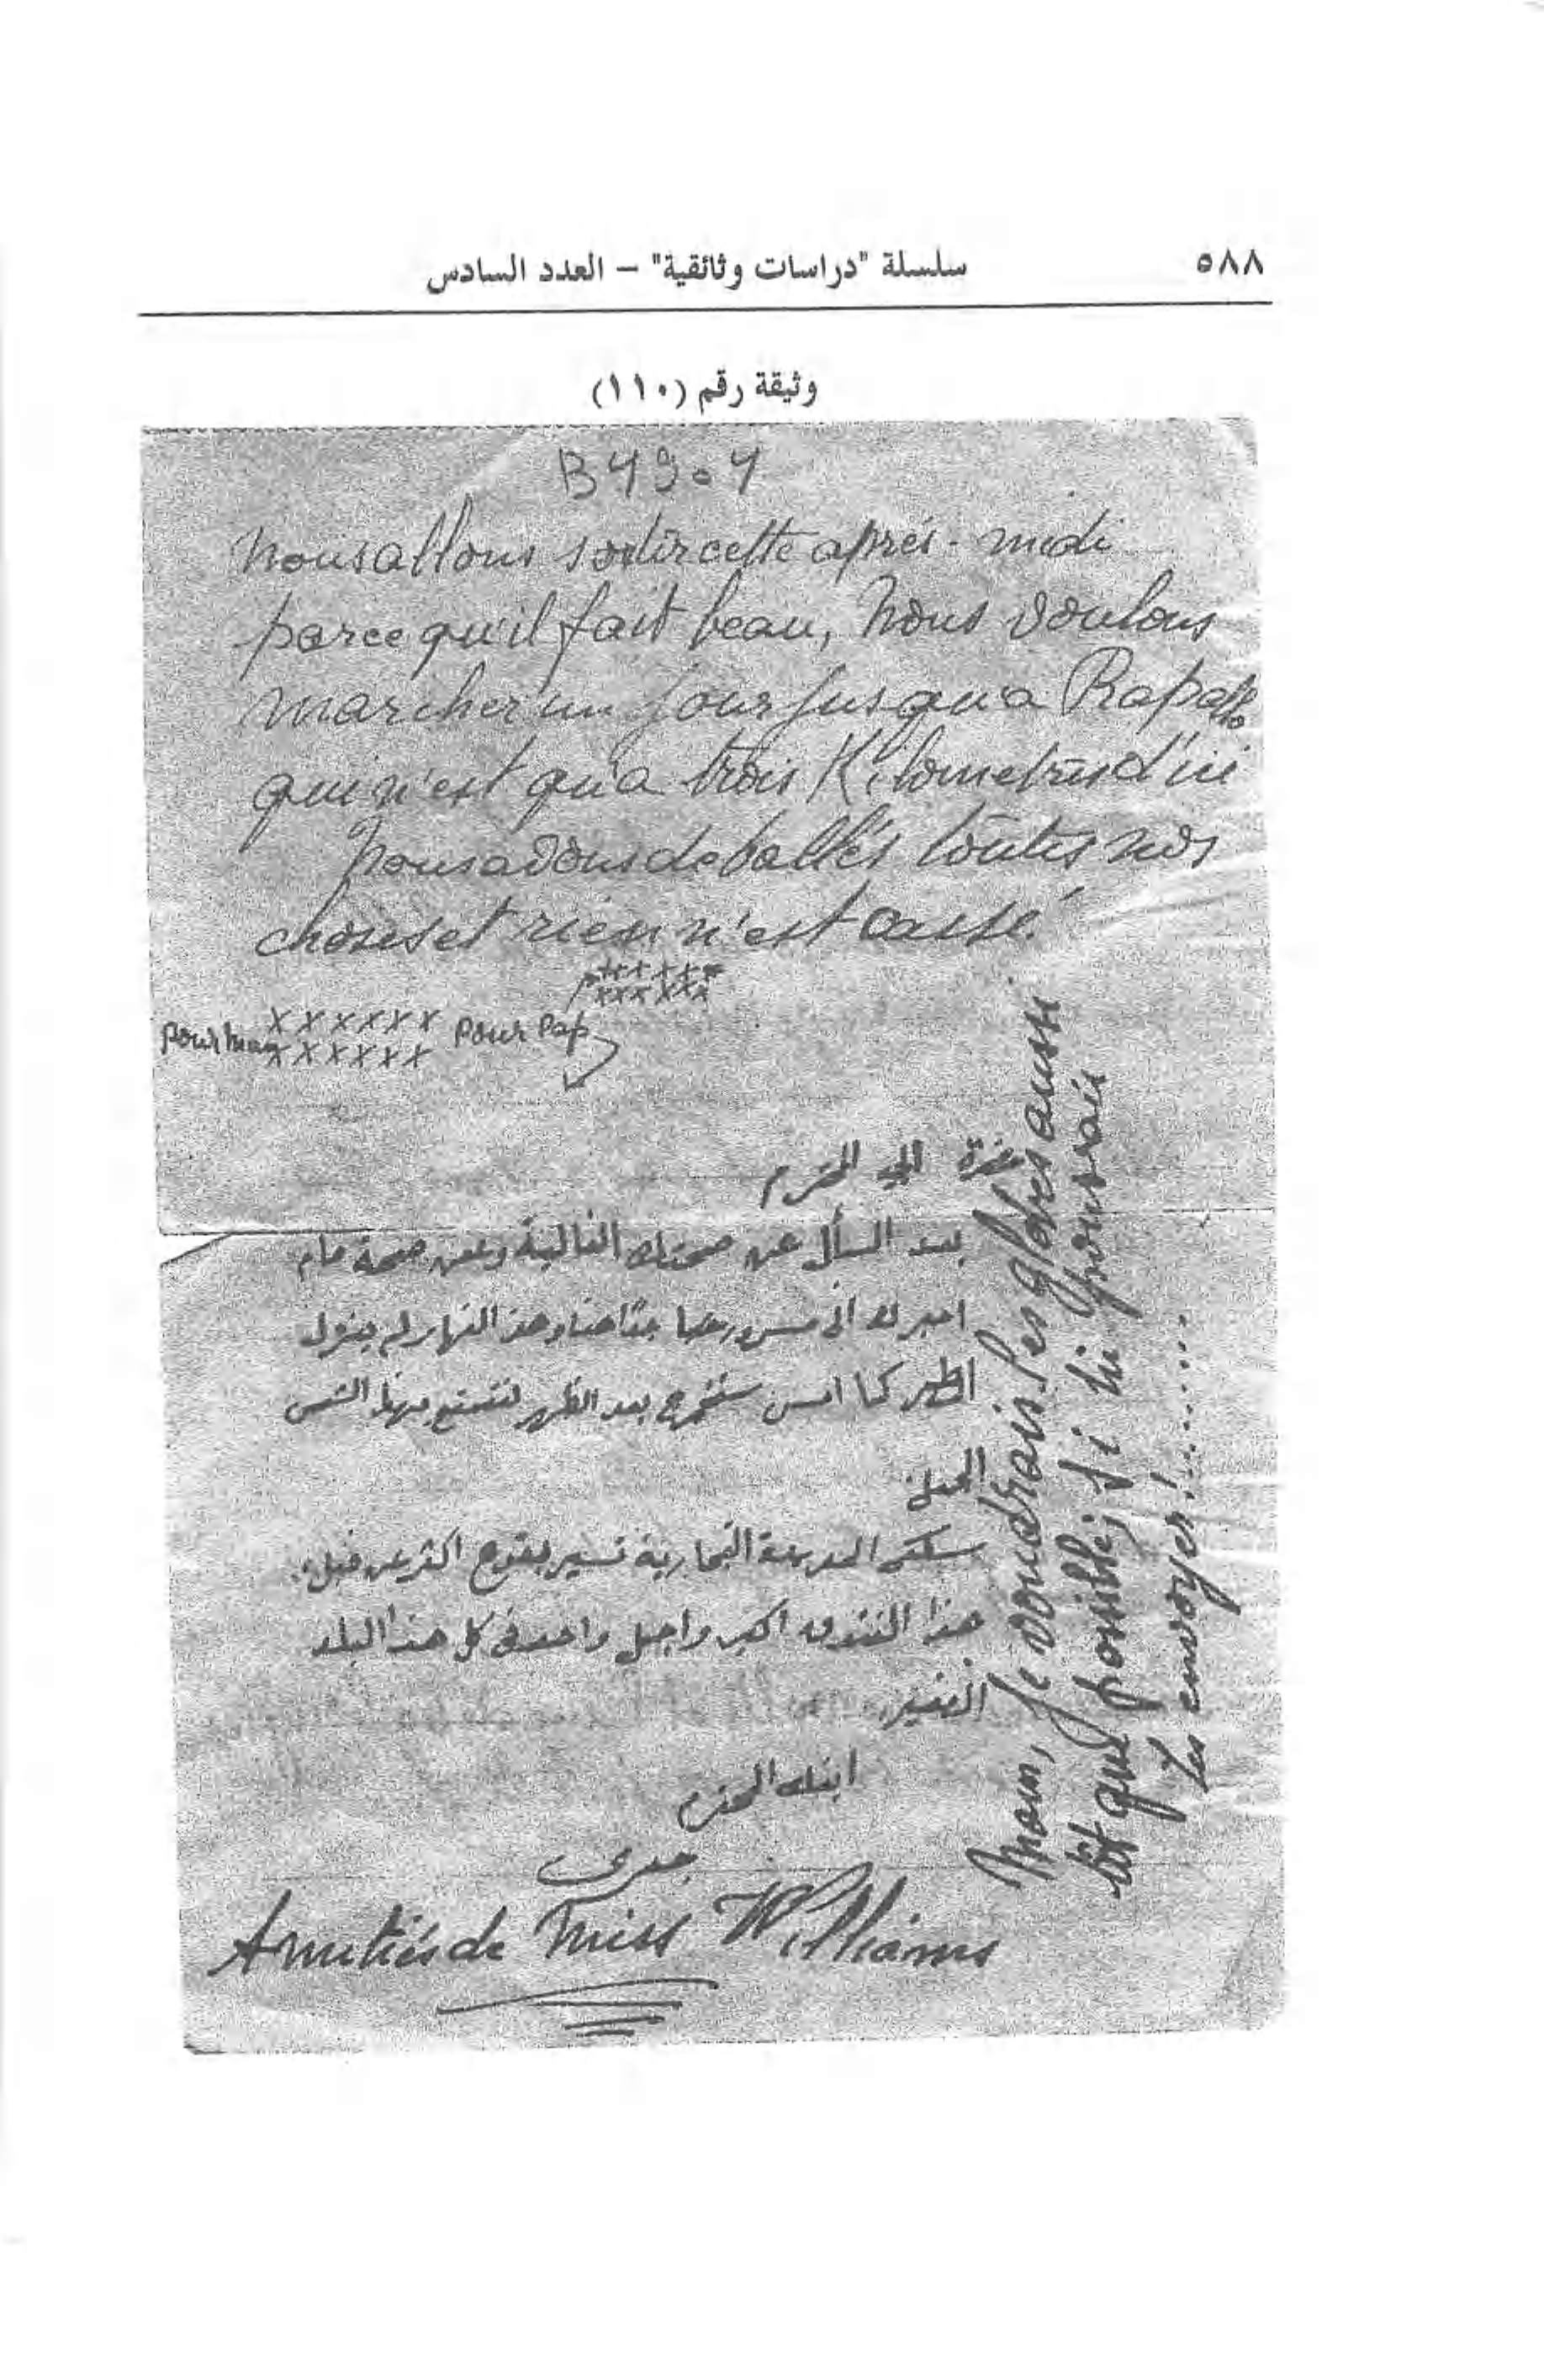 ٥٨٨
سلسلة "دراسات وثائقية" – العدد السادس
وثيقة رقم (١١٠)
Nous allons sortir cette après-midi
parce qu'il fait beau, Nous voulons
marcher un jour jusqu'a Rapallo
qui n'est qu'a trois Kilometres d'ici
Nous avons deballés toutes nos
choses et rien n'est cassé.
xxxxxx
xxxxxx
pour mam xxxxxx pour Pap
xxxxxx
حضرة ابي المحترم
بعد السأل عن صحتك الغالية وعن صحة مام
اخبرك اني مسرور هنا جدًا وهذ النهار لم ينزل
المطر كما امس سنخرج بعد الظهر لنتمتع بهذا الشمس
الجميل
سكك الحديدة التجارية تسير بقوة اكثر من قبل
هذا الفندق اكبر واجمل واحد في كل هذا البلد
الصغير
ابنك المحترم
Amitiés de Miss Williams
Mam, je voudrais les globes aussi
tôt que possible; si tu pourrais
les envoyer!.......